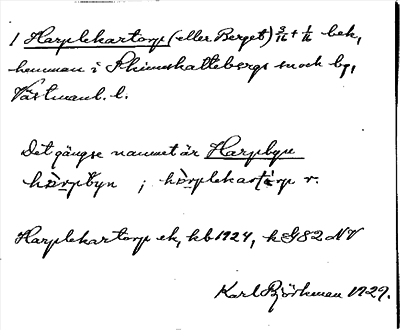 1 Harplekartorp (eller Berget) 3/16 + 1/16 bek,
hemman i Skinnskattebergs sock by,
Västmanl. l.
Det gängse namnet är Harpbyn
hàrpbyn ; hàrplekartòrp r.
Harplekartorp ek, kb 1924, k G82 NV
Karl Björkman 1929.